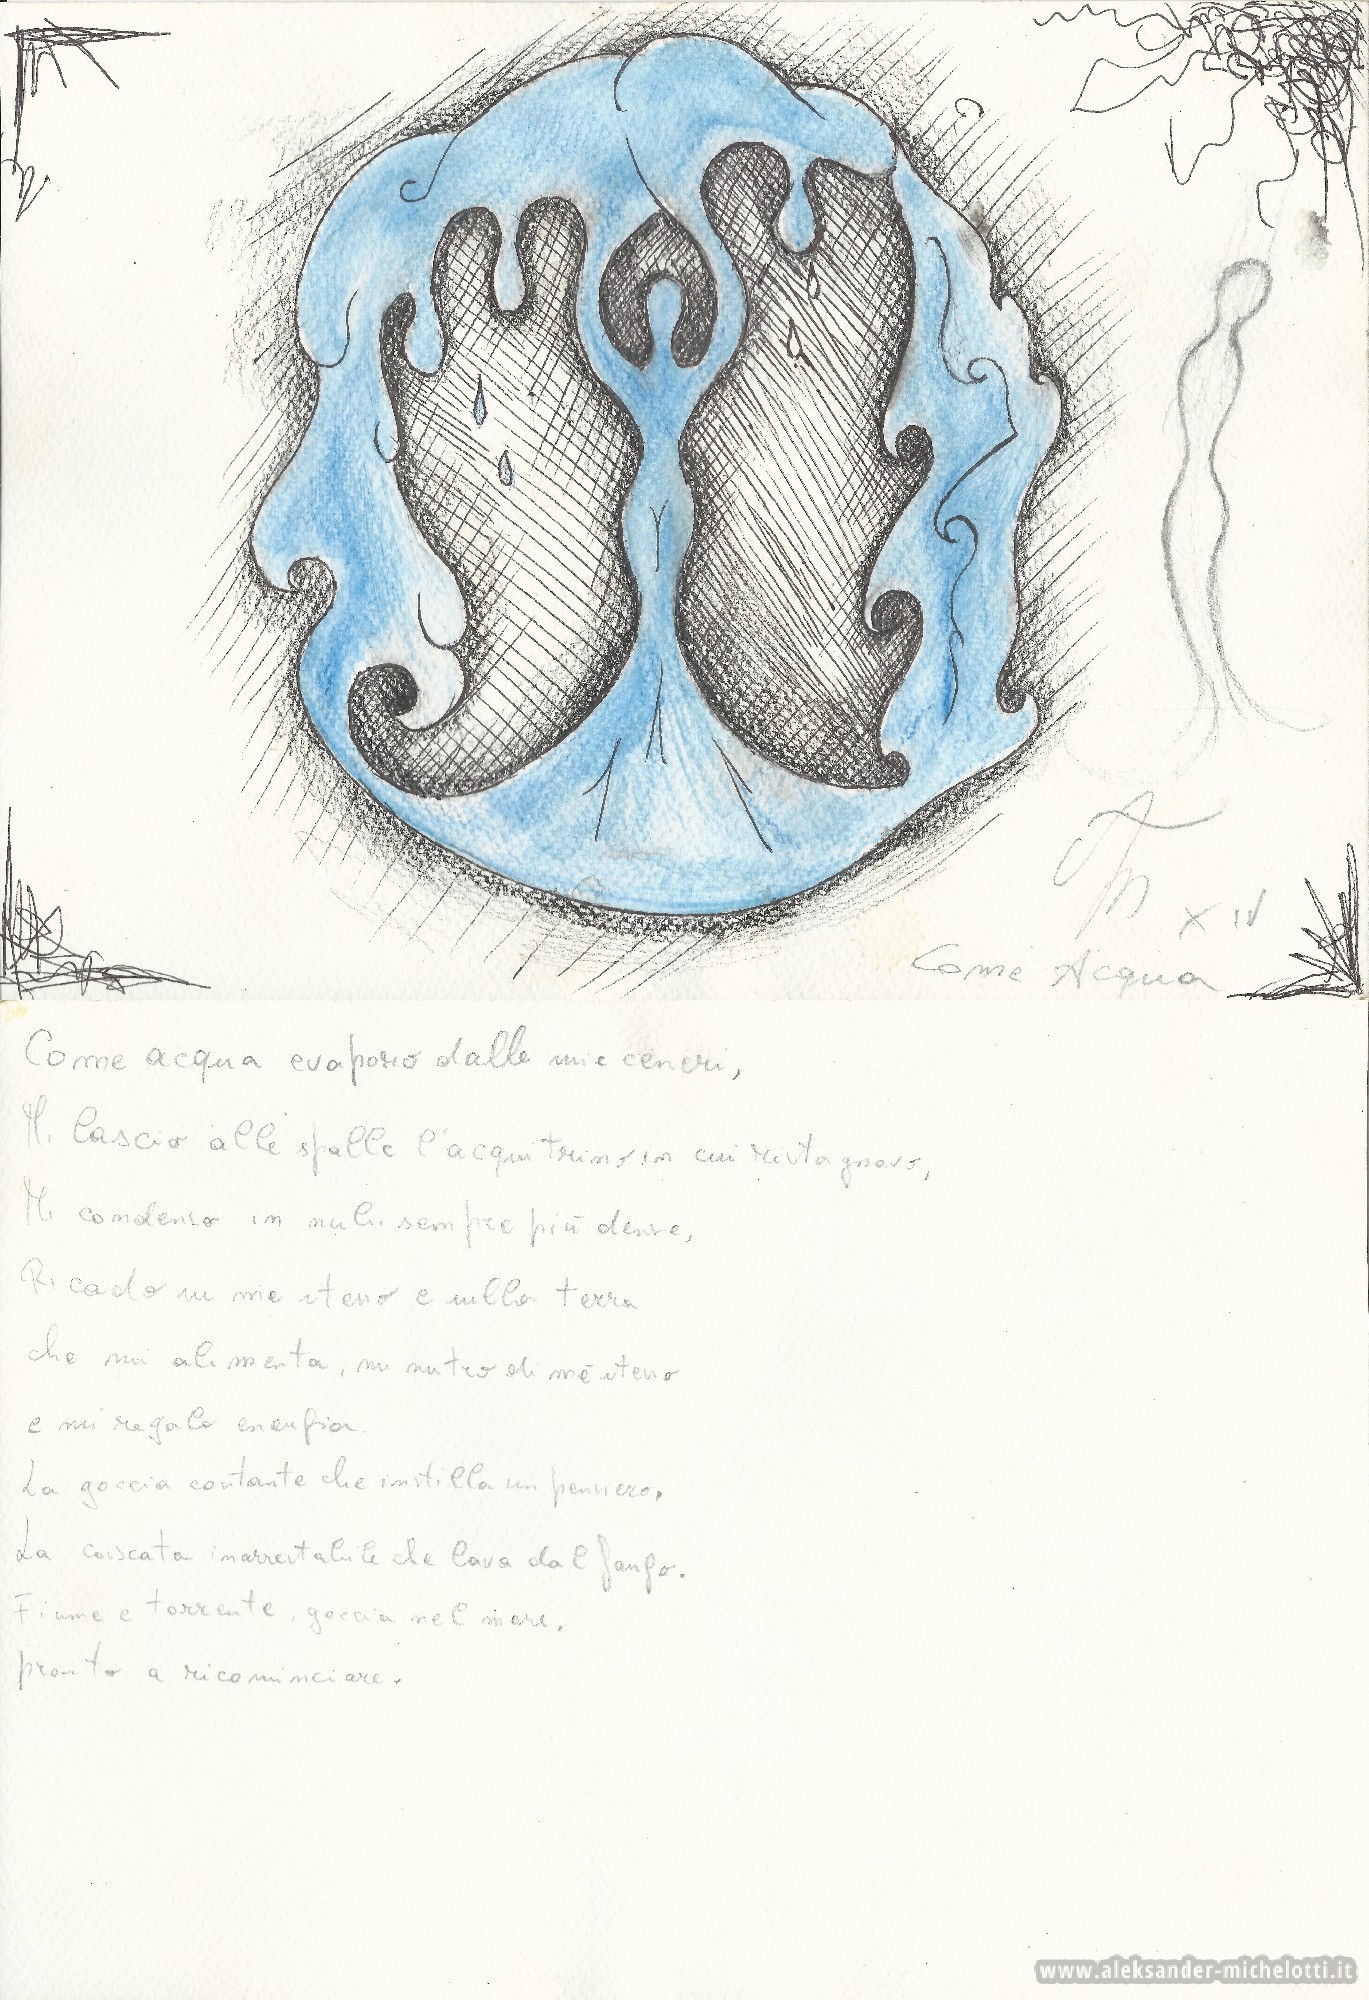 XIV
Come Acqua
Come acqua evaporo dalle mie ceneri,
Mi lascio alle spalle l'acquitrino in cui ristagnavo,
Mi condenso in nubi sempre più dense,
Ricado in me stesso e sulla terra
che mi alimenta, mi nutro di me stesso
e mi regalo energia.
La goccia costante che instilla un pensiero,
La cascata inarrestabile che lava dal fango.
Fiume e torrente, goccia nel mare,
pronto a ricominciare.
www.aleksander-michelotti.it